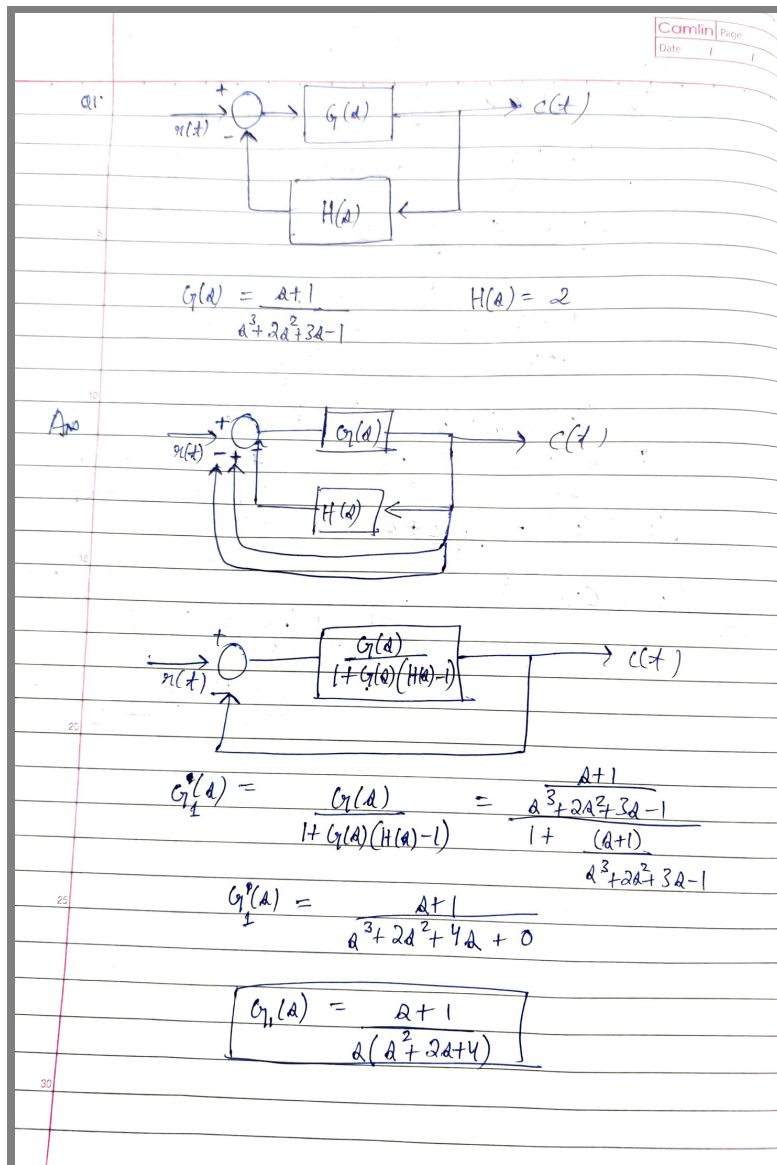 Camlin Page
Date / /
Q1.
+
r(t)
-
G(s)
c(t)
H(s)
5
G(s) = s+1 / s³+2s²+3s-1
H(s) = 2
10
Ans
+
r(t)
- + -
G(s)
c(t)
H(s)
15
+
r(t)
-
G(s) / 1+G(s)(H(s)-1)
c(t)
20
G₁(s) = G(s) / 1+G(s)(H(s)-1) = s+1 / s³+2s²+3s-1 / 1 + (s+1) / s³+2s²+3s-1
25
G₁(s) = s+1 / s³+2s²+4s+0
G₁(s) = s+1 / s(s²+2s+4)
30